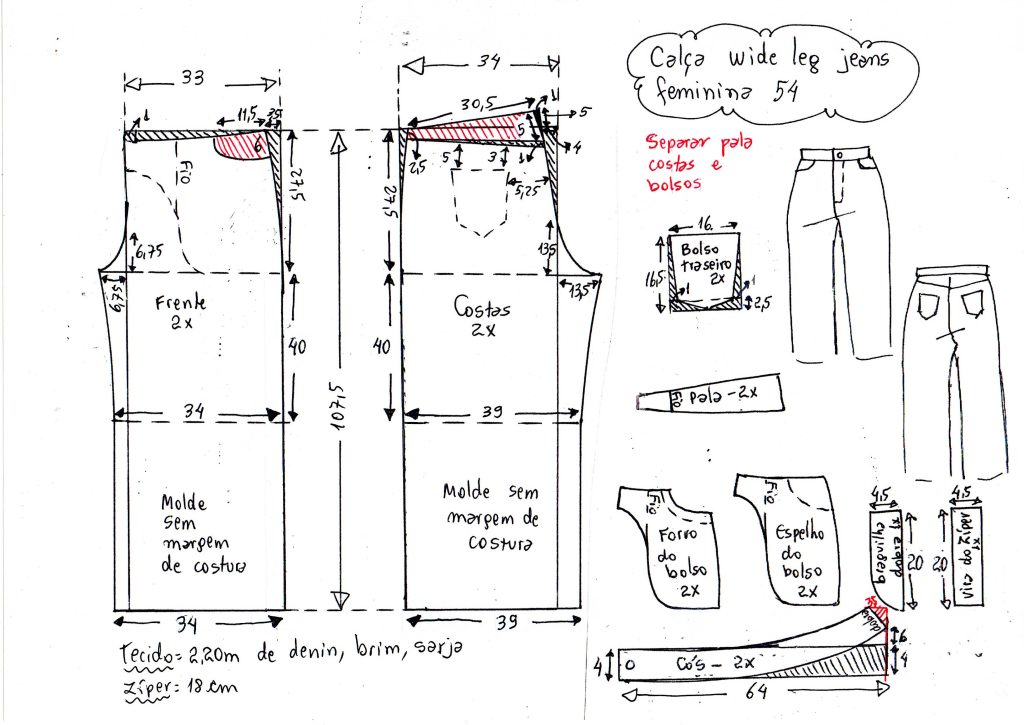 Calça wide leg jeans
feminina 54
Separar pala
costas e
bolsos
33
1
11,5
2,5
6
Fio
27,5
6,75
6,75
Frente
2x
40
34
Molde
sem
margem
de costura
34
107,5
34
30,5
1
5
5
4
2,5
5
3
1
5,25
27,5
13,5
13,5
Costas
2x
40
39
Molde sem
margem de
costura
39
16
Bolso
traseiro
2x
16,5
1
1
2,5
Fio
pala - 2x
Fio
Forro
do
bolso
2x
Fio
Espelho
do
bolso
2x
4,5
braguilha
dobra 1x
20
4,5
Vira do Zíper
x1
20
dobra
6
4
4
Cós - 2x
64
Tecido = 2,20m de denin, brim, sarja
Zíper = 18 cm